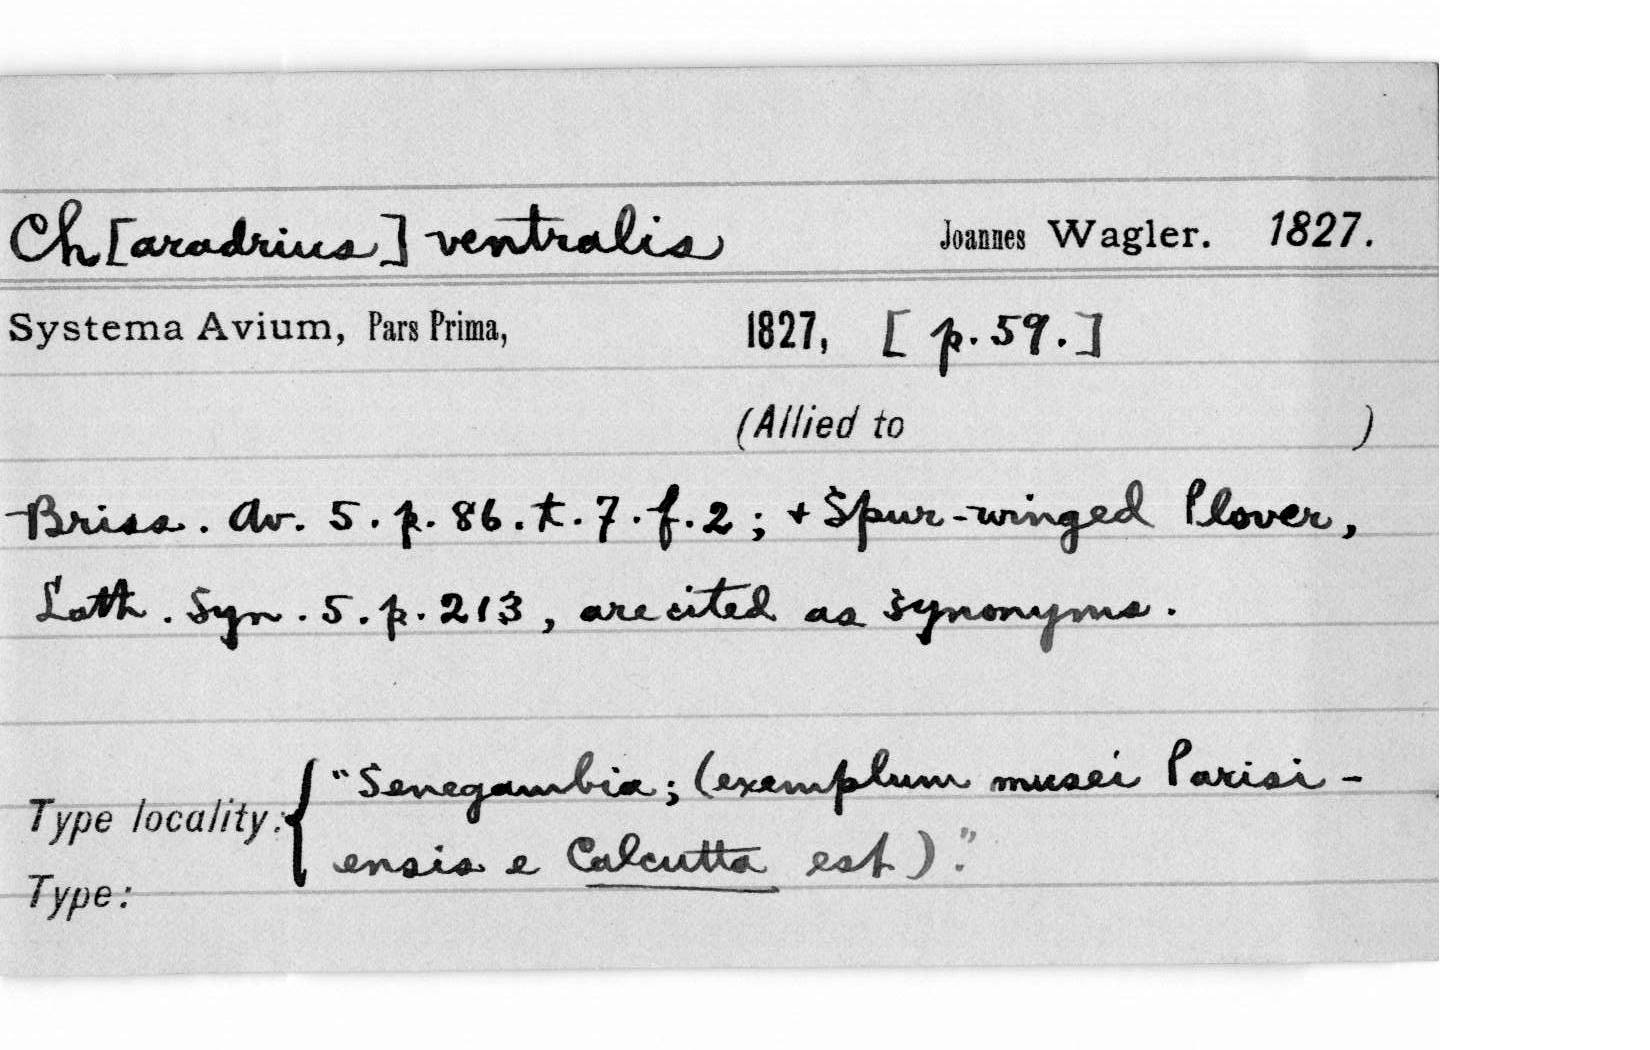 Ch[aradrius] ventralis Joannes Wagler. 1827.
Systema Avium, Pars Prima, 1827, [p.59.]
(Allied to )
Briss. Av. 5. p. 86. t. 7. f. 2; + Spur-winged Plover,
Lath. Syn. 5. p. 213, are cited as synonyms.
"Senegambia; (exemplum musei Parisi-
Type locality:
ensis e Calcutta est)."
Type: